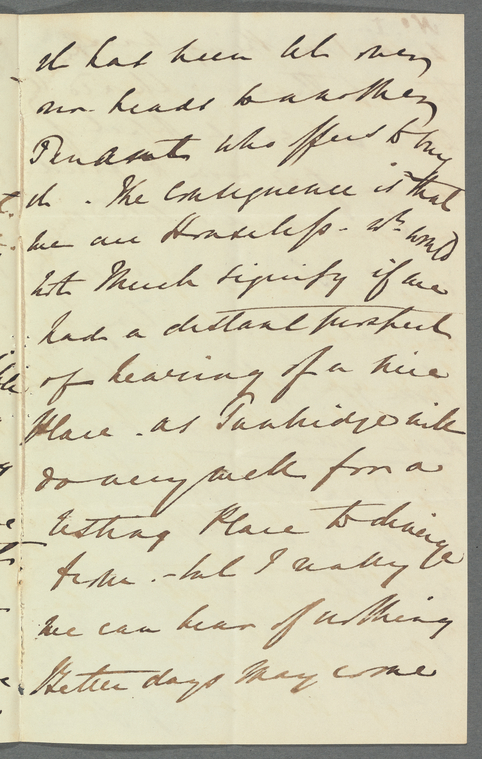 it has been let over
our heads to another
Tenant who offers to buy
it. The consequence is that
we are Houseless - wh would
not Much signify if we
had a distant prospect
of hearing of a nice
Place - as Tunbridge will
do very well for a
resting Place to diverge
from. - but I really
we can hear of nothing
Better days may come